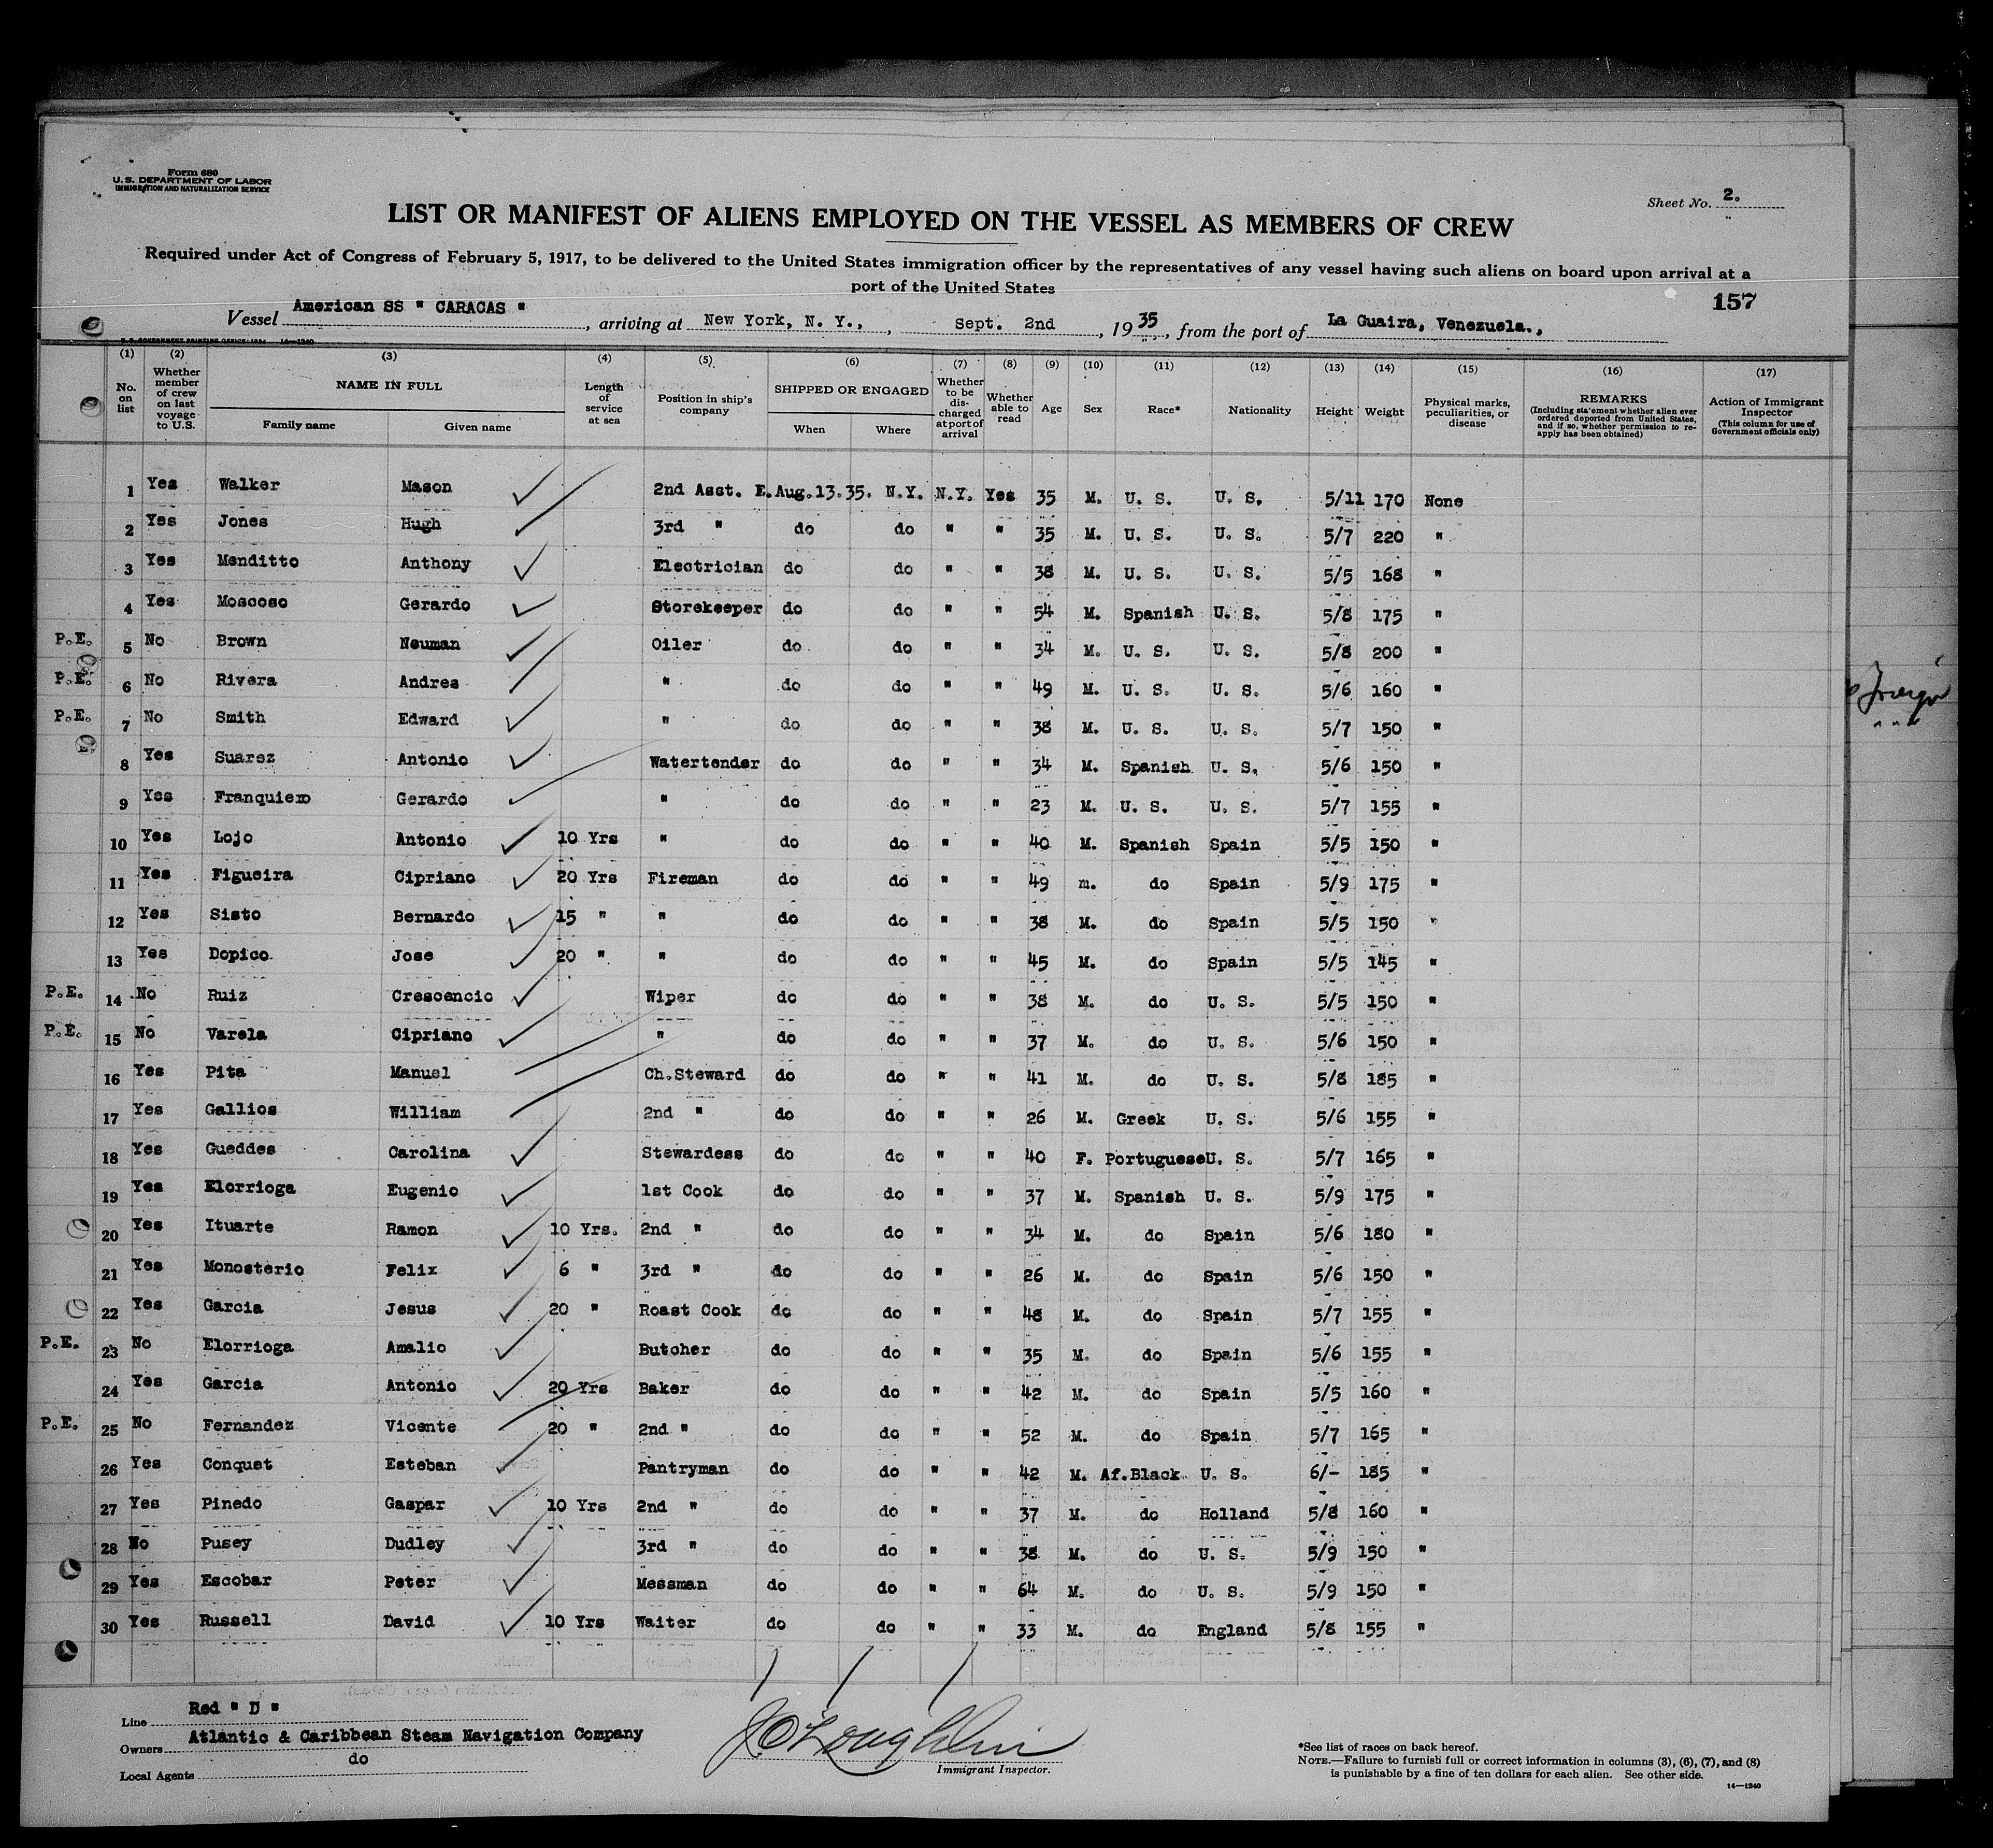 Form 680
U. S. DEPARTMENT OF LABOR
IMMIGRATION AND NATURALIZATION SERVICE
Sheet No. 2.
LIST OR MANIFEST OF ALIENS EMPLOYED ON THE VESSEL AS MEMBERS OF CREW
Required under Act of Congress of February 5, 1917, to be delivered to the United States immigration officer by the representatives of any vessel having such aliens on board upon arrival at a
port of the United States
157
Vessel American SS " CARACAS " , arriving at New York, N. Y., , Sept. 2nd , 19 35 , from the port of La Guaira, Venezuela.,
U. S. GOVERNMENT PRINTING OFFICE: 1934 14—1240
(1) (2) (3) (4) (5) (6) (7) (8) (9) (10) (11) (12) (13) (14) (15) (16) (17)
No. on list Whether member of crew on last voyage to U.S. NAME IN FULL Family name Given name Length of service at sea Position in ship's company SHIPPED OR ENGAGED When Where Whether to be discharged at port of arrival Whether able to read Age Sex Race* Nationality Height Weight Physical marks, peculiarities, or disease REMARKS (Including statement whether alien ever ordered deported from United States, and if so, whether permission to reapply has been obtained) Action of Immigrant Inspector (This column for use of Government officials only)
1 Yes Walker Mason 2nd Asst. E. Aug.13.35. N.Y. N.Y. Yes 35 M. U. S. U. S. 5/11 170 None
2 Yes Jones Hugh 3rd " do do " " 35 M. U. S. U. S. 5/7 220 "
3 Yes Menditto Anthony Electrician do do " " 38 M. U. S. U. S. 5/5 168 "
4 Yes Moscoso Gerardo Storekeeper do do " " 54 M. Spanish U. S. 5/8 175 "
P.E. 5 No Brown Neuman Oiler do do " " 34 M. U. S. U. S. 5/8 200 "
P.E. 6 No Rivera Andres " do do " " 49 M. U. S. U. S. 5/6 160 "
P.E. 7 No Smith Edward " do do " " 38 M. U. S. U. S. 5/7 150 "
8 Yes Suarez Antonio Watertender do do " " 34 M. Spanish U. S. 5/6 150 "
9 Yes Franquiero Gerardo " do do " " 23 M. U. S. U. S. 5/7 155 "
10 Yes Lojo Antonio 10 Yrs " do do " " 40 M. Spanish Spain 5/5 150 "
11 Yes Figueira Cipriano 20 Yrs Fireman do do " " 49 m. do Spain 5/9 175 "
12 Yes Sisto Bernardo 15 " " do do " " 38 M. do Spain 5/5 150 "
13 Yes Dopico Jose 20 " " do do " " 45 M. do Spain 5/5 145 "
P.E. 14 No Ruiz Crescencio Wiper do do " " 38 M. do U. S. 5/5 150 "
P.E. 15 No Varela Cipriano " do do " " 37 M. do U. S. 5/6 150 "
16 Yes Pita Manuel Ch.Steward do do " " 41 M. do U. S. 5/8 185 "
17 Yes Gallios William 2nd " do do " " 26 M. Greek U. S. 5/6 155 "
18 Yes Gueddes Carolina Stewardess do do " " 40 F. Portuguese U. S. 5/7 165 "
19 Yes Elorrioga Eugenio 1st Cook do do " " 37 M. Spanish U. S. 5/9 175 "
20 Yes Ituarte Ramon 10 Yrs. 2nd " do do " " 34 M. do Spain 5/6 180 "
21 Yes Monosterio Felix 6 " 3rd " do do " " 26 M. do Spain 5/6 150 "
22 Yes Garcia Jesus 20 " Roast Cook do do " " 48 M. do Spain 5/7 155 "
P.E. 23 No Elorrioga Amalio Butcher do do " " 35 M. do Spain 5/6 155 "
24 Yes Garcia Antonio 20 Yrs Baker do do " " 42 M. do Spain 5/5 160 "
P.E. 25 No Fernandez Vicente 20 " 2nd " do do " " 52 M. do Spain 5/7 165 "
26 Yes Conquet Esteban Pantryman do do " " 42 M. Af.Black U. S. 6/- 185 "
27 Yes Pinedo Gaspar 10 Yrs 2nd " do do " " 37 M. do Holland 5/8 160 "
28 No Pusey Dudley 3rd " do do " " 38 M. do U. S. 5/9 150 "
29 Yes Escobar Peter Messman do do " " 64 M. do U. S. 5/9 150 "
30 Yes Russell David 10 Yrs Waiter do do " " 33 M. do England 5/8 155 "
Line Red " D "
Owners Atlantic & Caribbean Steam Navigation Company
Local Agents do
J O'Loughlin
Immigrant Inspector.
*See list of races on back hereof.
NOTE.—Failure to furnish full or correct information in columns (3), (6), (7), and (8)
is punishable by a fine of ten dollars for each alien. See other side.
14—1240